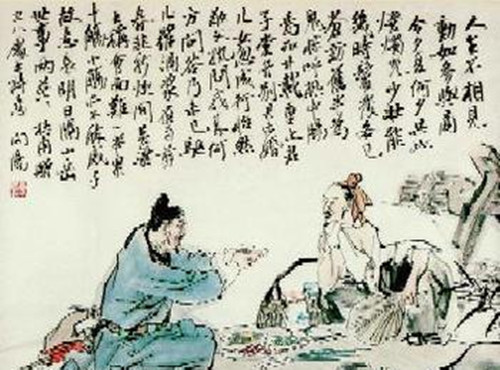 人生不相見
動如參與商
今夕是何夕共此
燈燭光少壯能
幾時鬢髮各已
蒼訪舊半為
鬼驚呼熱中腸
焉知廿載重上君
子堂昔別君未婚
兒女忽成行怡然
敬父執問我來何
方問答乃未已驅
兒羅酒漿夜雨剪
春韭新炊間黃粱
主稱會面難一舉累
十觴十觴亦不醉感子
故意長明日隔山岳
世事兩茫茫 杜甫贈
衛八處士詩意